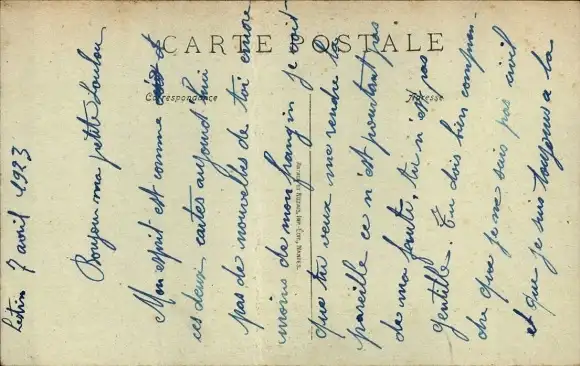 CARTE POSTALE
Correspondance
Adresse
7 avril 1923
Bonjour ma petite Loulou
Mon esprit est comme et
ces deux cartes aujourd'hui
pas de nouvelles de toi encore
moins de mon frangin je vois
que tu veux me rendre la
pareille ce n'est pourtant pas
de ma faute, tu n'est pas
gentille. Tu dois bien compren-
dre que je ne suis pas civil
et que je suis toujours a la